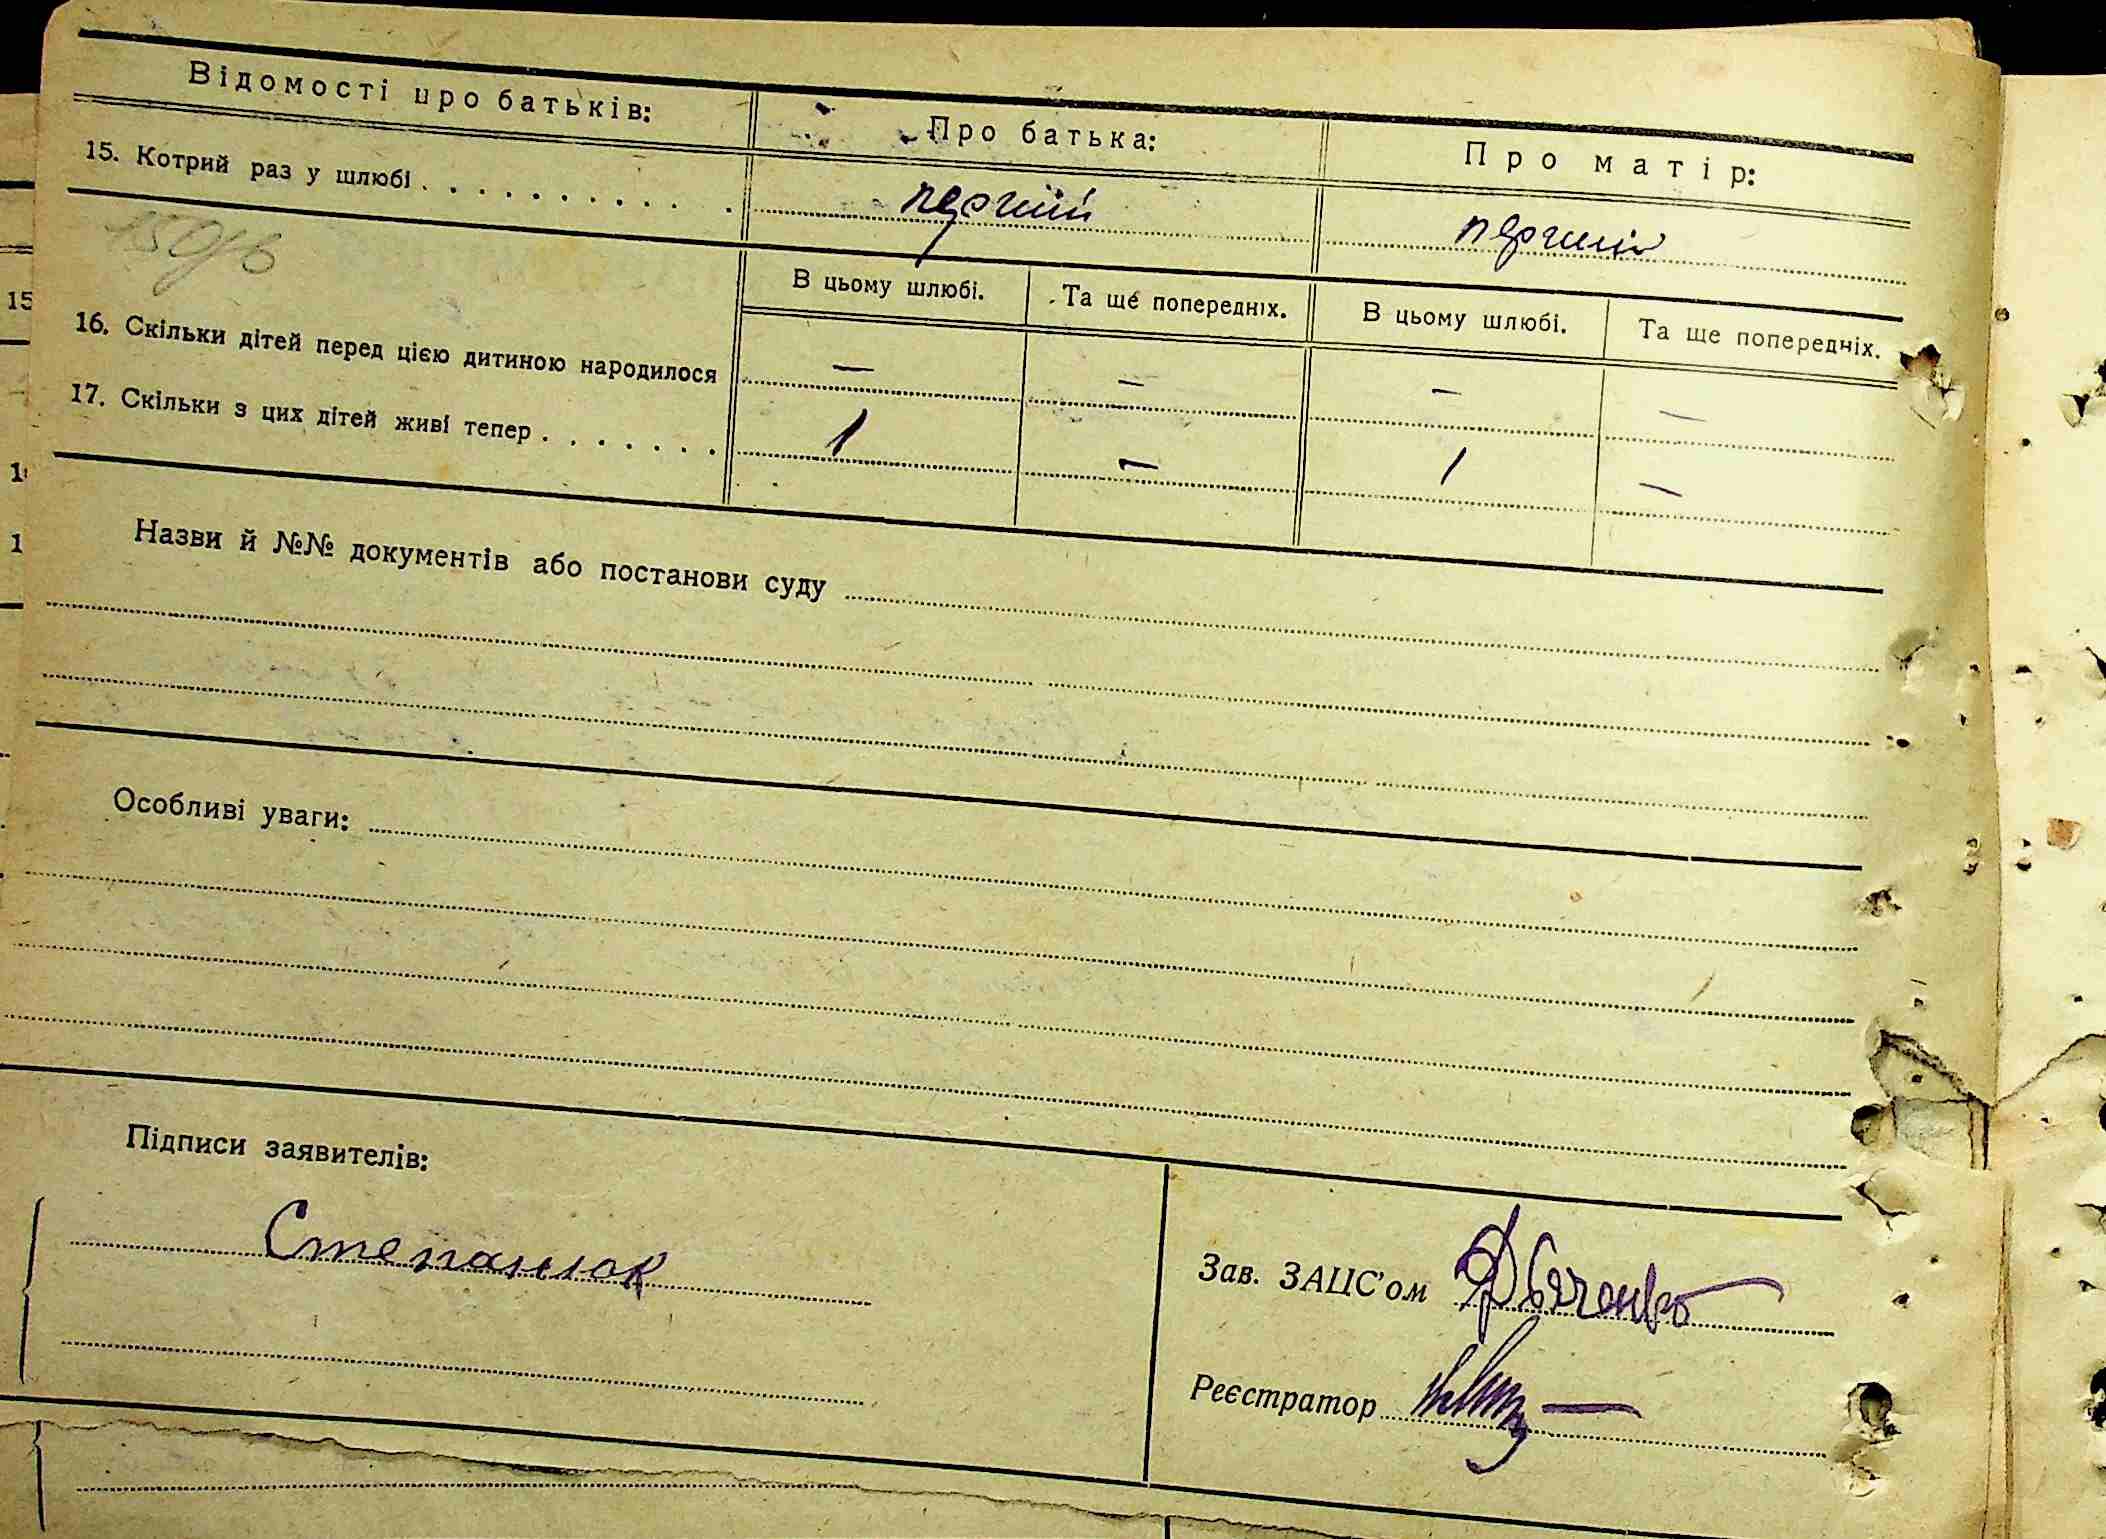 Відомості про батьків: Про батька: Про матір:
15. Котрий раз у шлюбі . . . . . . . . . . . перший перший
В цьому шлюбі. Та ще попередніх. В цьому шлюбі. Та ще попередніх.
16. Скільки дітей перед цією дитиною народилося — — — —
17. Скільки з цих дітей живі тепер . . . . . . . 1 — 1 —
Назви й №№ документів або постанови суду
Особливі уваги:
Підписи заявителів:
Степанюк
Зав. ЗАЦС'ом Дяченко
Реєстратор
15
1